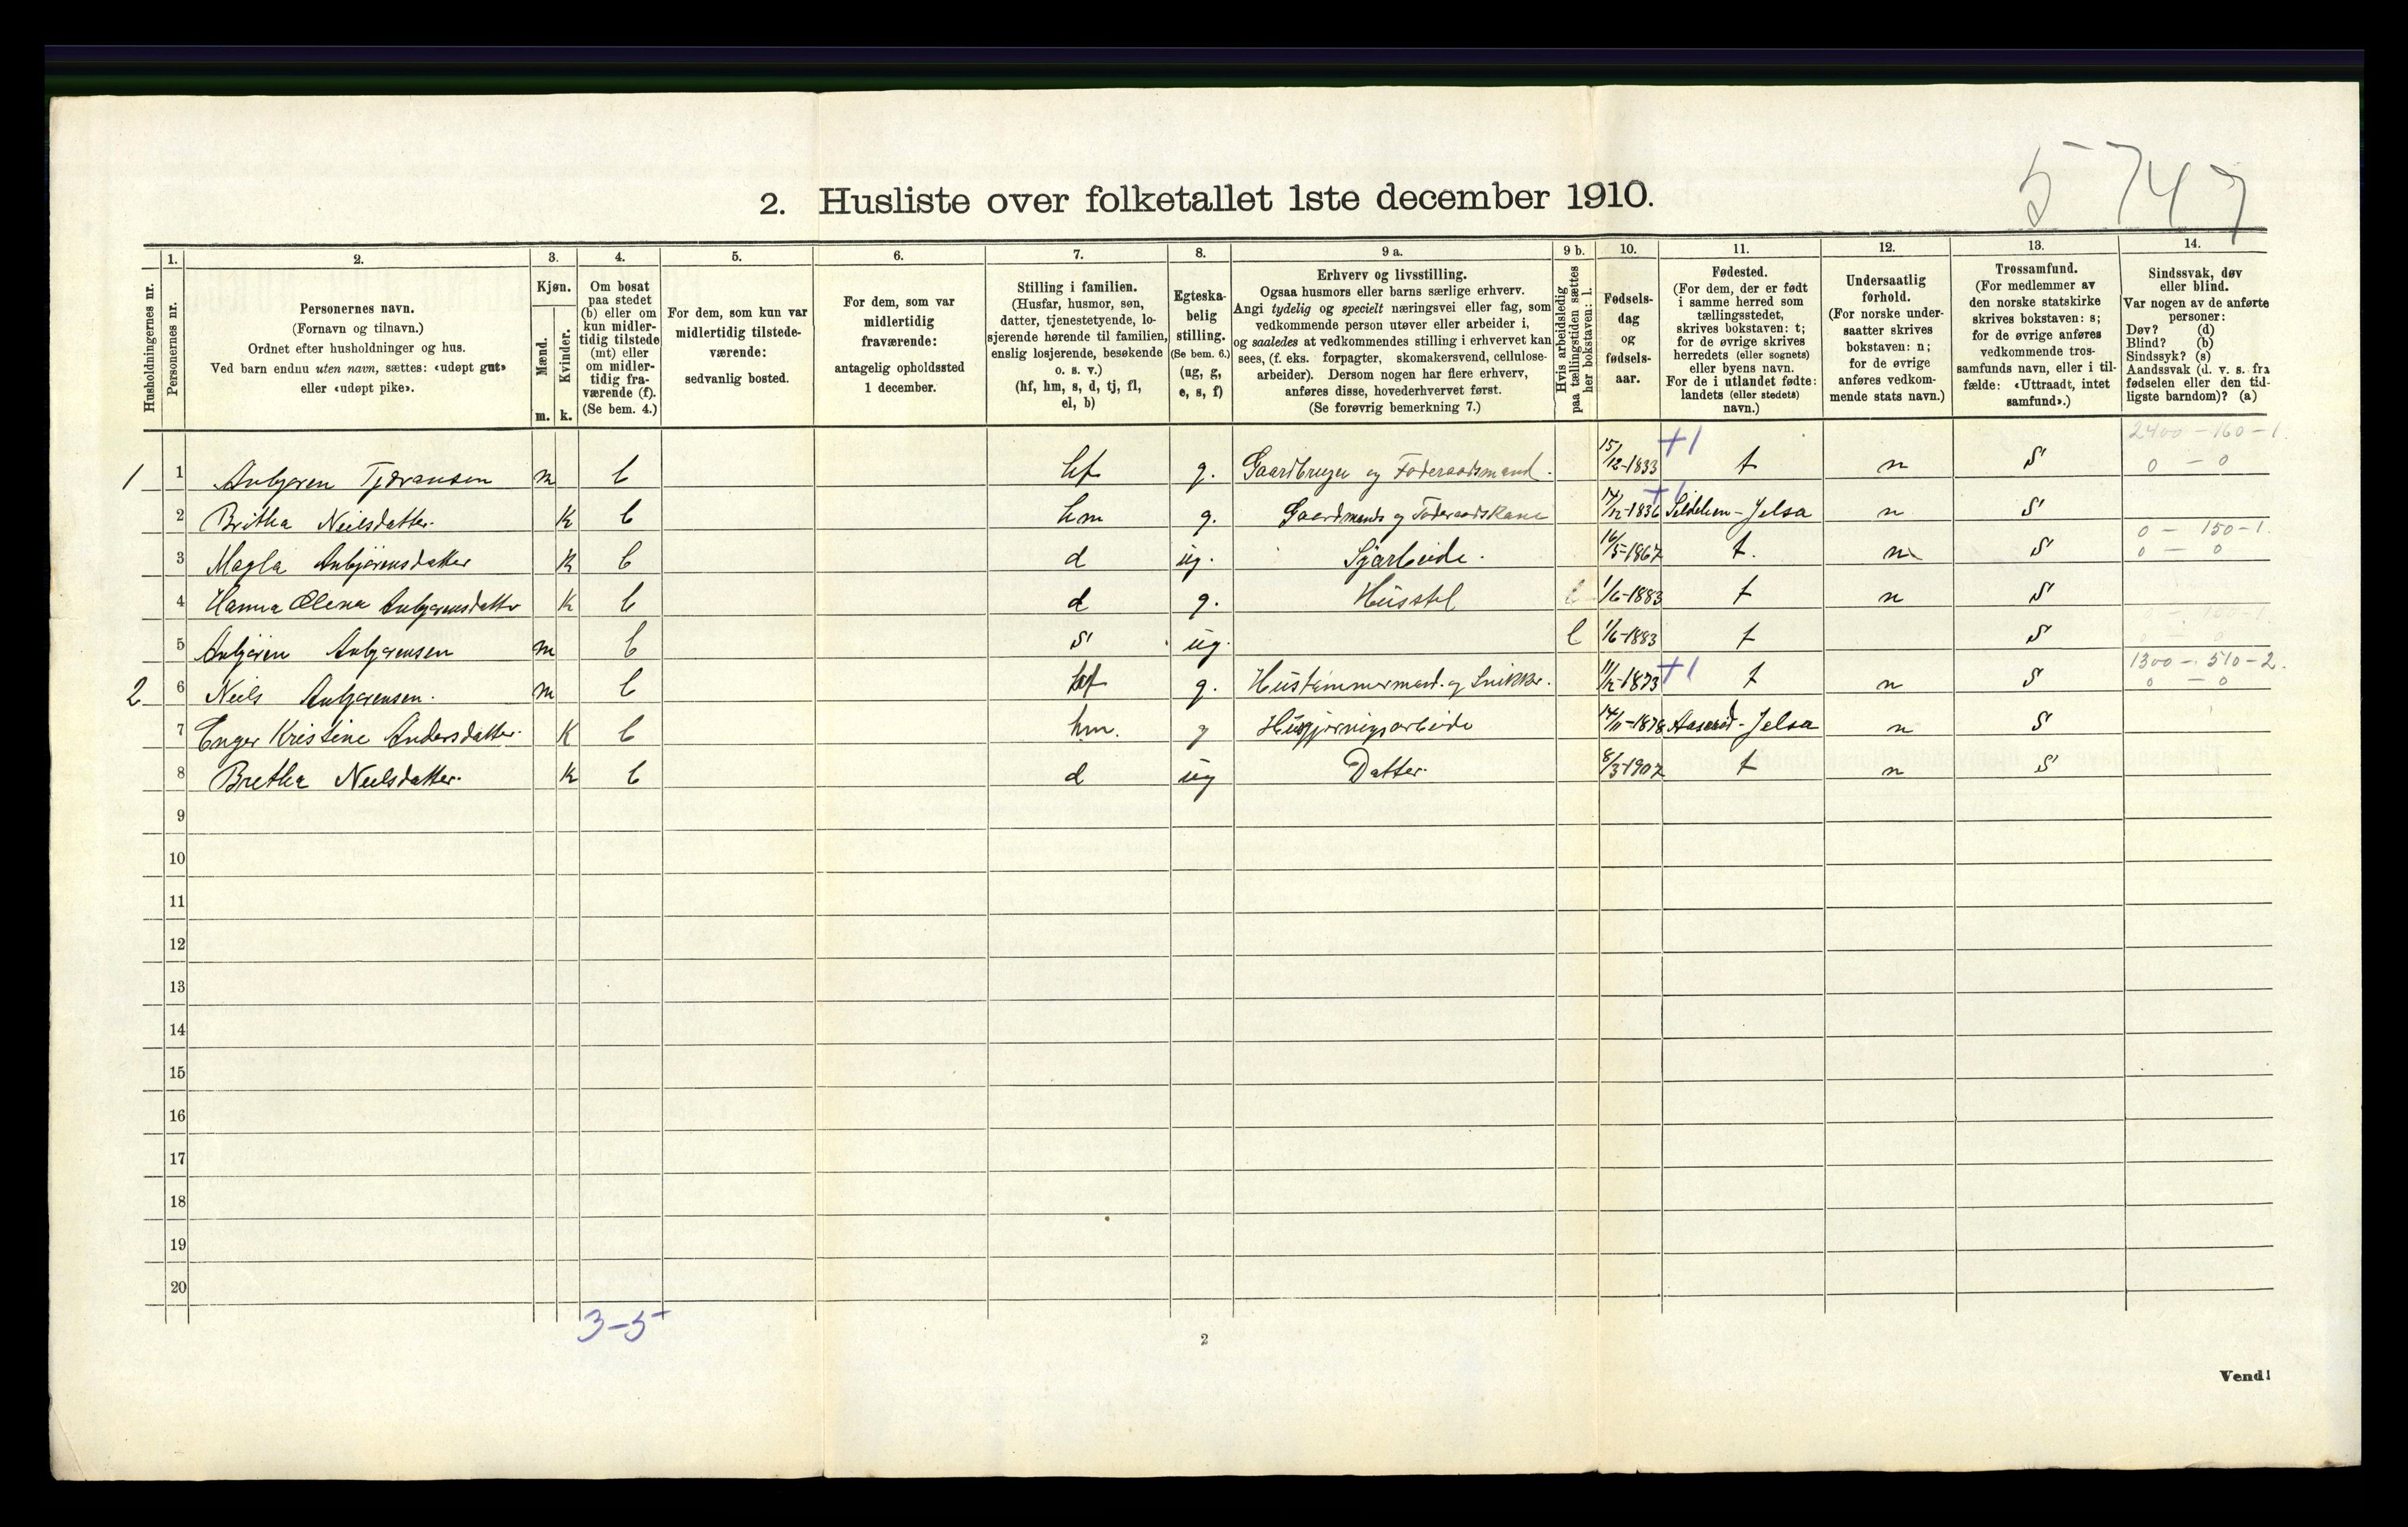 5747
2. Husliste over folketallet 1ste december 1910.
Husholdningernes nr.
1. Personernes nr.
2. Personernes navn.
(Fornavn og tilnavn.)
Ordnet efter husholdninger og hus.
Ved barn endnu uten navn, sættes: «udøpt gut»
eller «udøpt pike».
3. Kjøn.
Mænd. m.
Kvinder. k.
4. Om bosat
paa stedet
(b) eller om
kun midler-
tidig tilstede
(mt) eller
om midler-
tidig fra-
værende (f).
(Se bem. 4.)
5. For dem, som kun var
midlertidig tilstede-
værende:
sedvanlig bosted.
6. For dem, som var
midlertidig
fraværende:
antagelig opholdssted
1 december.
7. Stilling i familien.
(Husfar, husmor, søn,
datter, tjenestetyende, lo-
sjerende hørende til familien,
enslig losjerende, besøkende
o. s. v.)
(hf, hm, s, d, tj, fl,
el, b)
8. Egteska-
belig
stilling.
(Se bem. 6.)
(ug, g,
e, s, f)
9 a. Erhverv og livsstilling.
Ogsaa husmors eller barns særlige erhverv.
Angi tydelig og specielt næringsvei eller fag, som
vedkommende person utøver eller arbeider i,
og saaledes at vedkommendes stilling i erhvervet kan
sees, (f. eks. forpagter, skomakersvend, cellulose-
arbeider). Dersom nogen har flere erhverv,
anføres disse, hovederhvervet først.
(Se forøvrig bemerkning 7.)
9 b. Hvis arbeidsledig
paa tællingstiden sættes
her bokstaven: l.
10. Fødsels-
dag
og
fødsels-
aar.
11. Fødested.
(For dem, der er født
i samme herred som
tællingsstedet,
skrives bokstaven: t;
for de øvrige skrives
herredets (eller sognets)
eller byens navn.
For de i utlandet fødte:
landets (eller stedets)
navn.)
12. Undersaatlig
forhold.
(For norske under-
saatter skrives
bokstaven: n;
for de øvrige
anføres vedkom-
mende stats navn.)
13. Trossamfund.
(For medlemmer av
den norske statskirke
skrives bokstaven: s;
for de øvrige anføres
vedkommende tros-
samfunds navn, eller i til-
fælde: «Uttraadt, intet
samfund».)
14. Sindssvak, døv
eller blind.
Var nogen av de anførte
personer:
Døv? (d)
Blind? (b)
Sindssyk? (s)
Aandssvak (d. v. s. fra
fødselen eller den tid-
ligste barndom)? (a)
1 1 Anbjøren Tjøransen m b hf g. Gaardbruger og Føderaadsmand. 15/12-1833 +1 t n S 2400 - 160 - 1 0 - 0
2 Britha Neilsdatter. K b hm g. Gaardmands og Føderaadskane 14/12-1836 +1 Jelsa n S
3 Magla Anbjørensdatter K b d ug. 16/5-1867 t. n S 0 - 150 - 1. 0 - 0
4 Hanna Olena Anbjørensdatter K b d g. Husstel l 1/6-1883 t n S
5 Anbjøren Anbjørensen m b s ug. l 1/6-1883 t S
2 6 Neils Anbjørensen. m b hf g. Hustømmermand. og Snikker. 11/12-1873 +1 t n S 1300 - 510 - 2. 0 - 0
7 Enger Kristine Andersdatter. K b hm. g Husgjerningsarbeide 14/11-1878 Jelsa n S
8 Bretha Neilsdatter. K b d ug Datter. 8/3-1907 t n S
9
10
11
12
13
14
15
16
17
18
19
20
3-5
2
Vend!